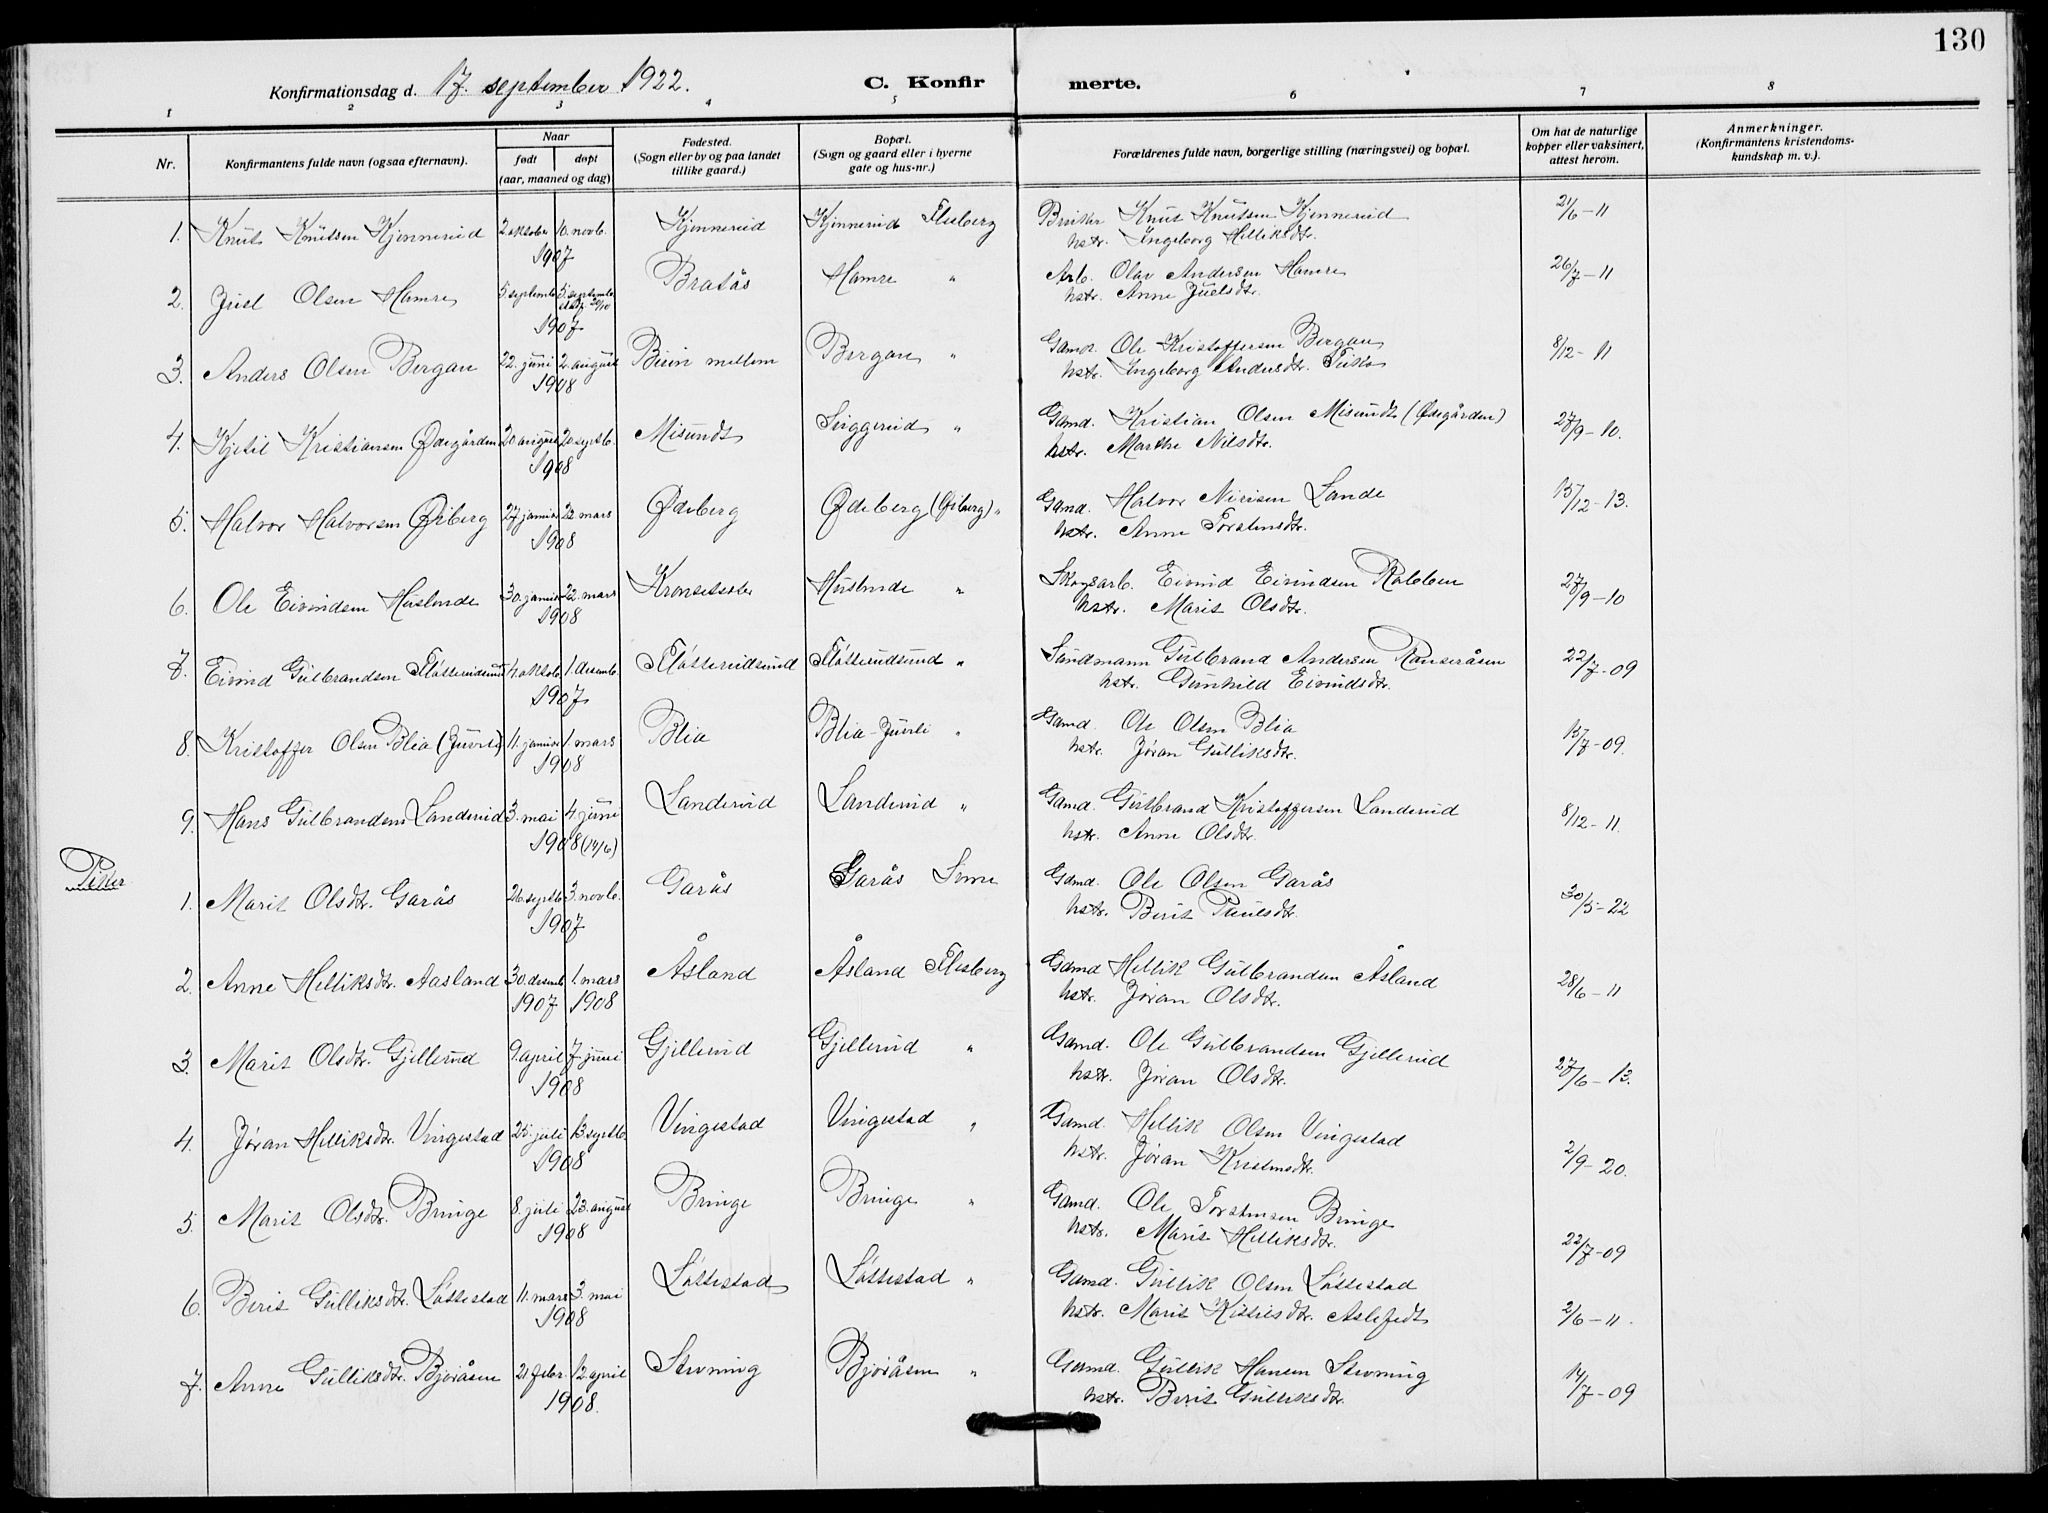 130
Konfirmationsdag d. 17. september 1922. C. Konfirmerte.
1 2 3 4 5 6 7 8
Nr. Konfirmantens fulde navn (ogsaa efternavn). Naar født døpt (aar, maaned og dag) Fødested. (Sogn eller by og paa landet tillike gaard.) Bopæl. (Sogn og gaard eller i byerne gate og hus-nr.) Forældrenes fulde navn, borgerlige stilling (næringsvei) og bopæl. Om hat de naturlige kopper eller vaksinert, attest herom. Anmerkninger. (Konfirmantens kristendomskundskap m. v.).
1. Knut Knutsen Kjennerud 2. oktober 10. novb. Kjennerud Kjennerud Flesberg Bruker Knut Knutsen Kjennerud 21/6-11
1907 hstr. Ingeborg Helliksdtr.
2. Juel Olsen Hamre 5. septemb. 5. septemb. stadf. 20/10 Bratås Hamre " Arb. Olav Andersen Hamre 26/7-11
1907 hstr. Anne Juelsdtr.
3. Anders Olsen Bergan 22. juni 2. august Bein mellem Bergan " Gamd. Ole Kristoffersen Bergan 8/12-11
1908 hstr. Ingeborg Andersdtr.
4. Kjetil Kristiansen Ødegården 20 august 20 septb. Misundt Lyggerud " Gamd. Kristian Olsen Misundt (Ødegården) 27/9-10.
1908 hstr. Marthe Nilsdtr.
5. Halvor Halvorsen Øiberg 27 januar 22 mars Ødeberg Ødeberg (Øiberg) " Gamd. Halvor Nirisen Lande 15/12-13.
1908 hstr. Anne Torstensdtr.
6. Ole Eivindsen Huslende 30. januar 22. mars Huslende " Skogsarb. Eivind Eivindsen 27/9-10
1908 hstr. Marit Olsdtr.
7. Eivind Gulbrandsen Fløtterudsund 4. oktob. 1. desemb. Fløtterudsund Fløtterudsund " Sundmann Gulbrand Andersen Ranseråsen 22/7-09
1907 hstr. Gunhild Eivindsdtr.
8. Kristoffer Olsen Blia (Juvrli) 11. januar 1. mars Blia Blia-Juvrli " Gamd. Ole Olsen Blia 15/7-09.
1908 hstr. Jøran Gulliksdtr.
9. Hans Gulbrandsen Landerud 3. mai 4. juni Landerud Landerud " Gamd. Gulbrand Kristoffersen Landerud 8/12-11.
1908 (14/6) hstr. Anne Olsdtr.
Piker
1. Marit Olsdtr. Garås 26. septb. 3. novb. Garås Garås Svene Gamd. Ole Olsen Garås 30/5-22
1907 hstr. Berit Paulsdtr.
2. Anne Helliksdtr. Aasland 30. desemb. 1. mars Åsland Åsland Flesberg Gamd Hellik Gulbrandsen Åsland 28/6-11
1907 1908 hstr. Jøran Olsdtr.
3. Marit Olsdtr. Gjellerud 9. april 7 juni Gjellerud Gjellerud " Gamd. Ole Gulbrandsen Gjellerud 27/6-13.
1908 hstr. Jøran Olsdtr.
4. Jøran Helliksdtr. Vingestad 25. juli 13. septb. Vingestad Vingestad " Gamd. Hellik Olsen Vingestad 2/9-20.
1908 hstr. Jøran Kristensdtr.
5. Marit Olsdtr. Bringe 8. juli 23. august Bringe Bringe " Gamd. Ole Torstensen Bringe 22/7-09
1908 hstr. Marit Helliksdtr.
6. Berit Gulliksdtr. Løttestad 11. mars 3. mai Løttestad Løttestad " Gamd. Gullik Olsen Løttestad
1908 hstr. Marit Kittilsdtr. Aslefedt 2/6-11.
7. Anne Gulliksdtr. Bjøråsen 21. febr. 12. april Stevning Bjøråsen " Gamd. Gullik Hansen Stevning 14/7-09
1908. hstr. Berit Gulliksdtr.